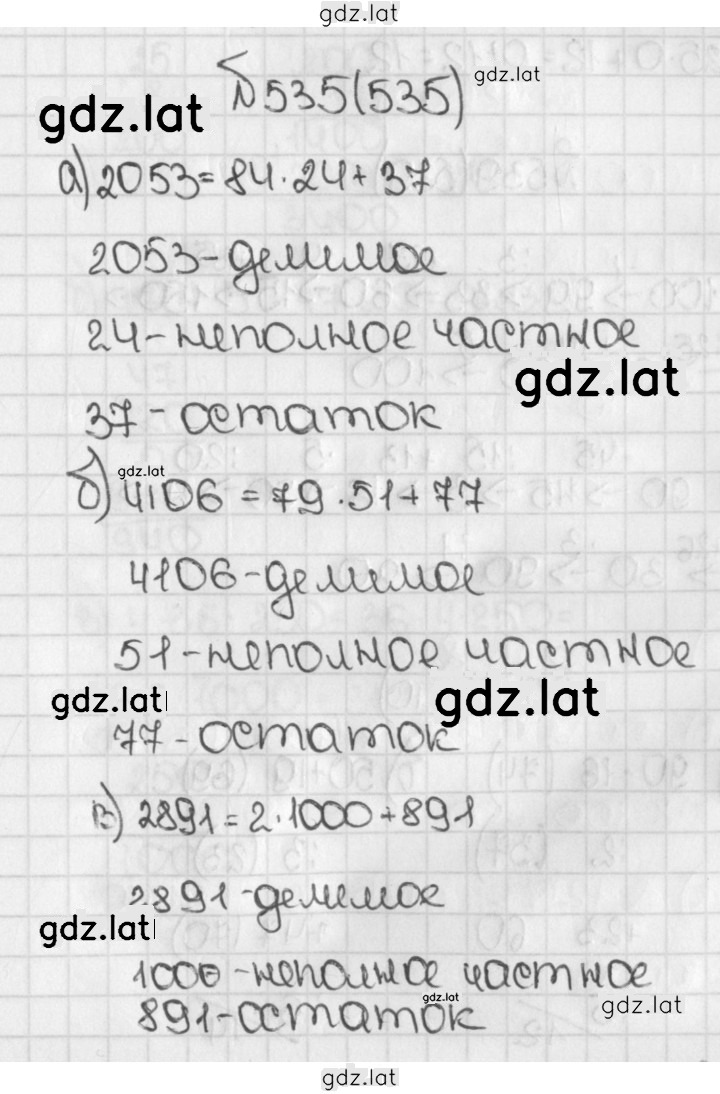 gdz.lat
№535(535) gdz.lat
gdz.lat
а) 2053=84·24+37
2053-делимое
24-неполное частное
gdz.lat
37-остаток
gdz.lat
б) 4106=79·51+77
4106-делимое
51-неполное частное
gdz.lat gdz.lat
77-остаток
в) 2891=2·1000+891
2891-делимое
gdz.lat
1000-неполное частное
gdz.lat gdz.lat
891-остаток
gdz.lat